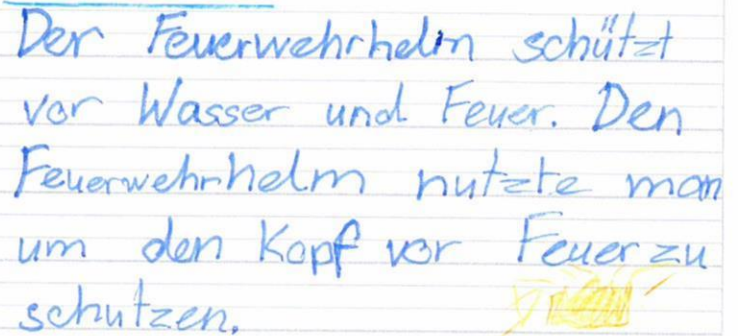 Der Feuerwehrhelm schützt
vor Wasser und Feuer. Den
Feuerwehrhelm nutzte man
um den Kopf vor Feuer zu
schutzen.